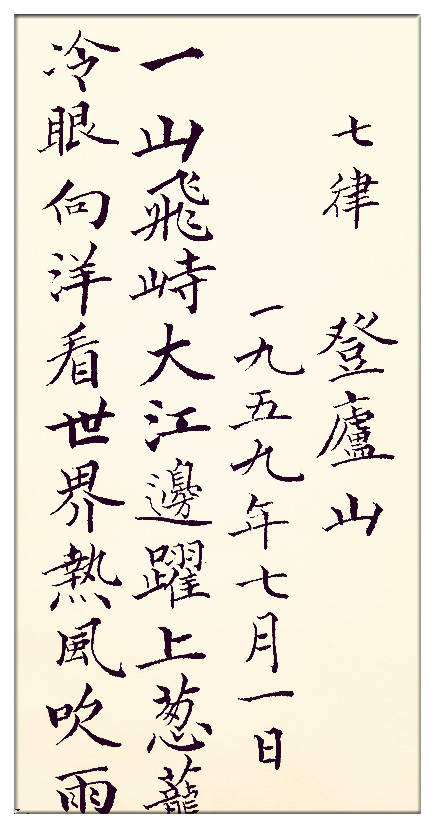 七律 登廬山
一九五九年七月一日
一山飛峙大江邊躍上葱蘢
冷眼向洋看世界熱風吹雨